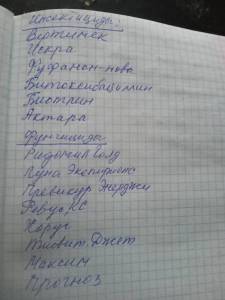 Инсектициды:
Вертимек
Искра
Фуфанон-нова
Битоксибациллин
Биотлин
Актара
Фунгициды
Ридомил голд
Луна Экспириенс
Превикур Энерджи
Ревус, КС
Хорус
Тиовит Джет
Максим
Прогноз